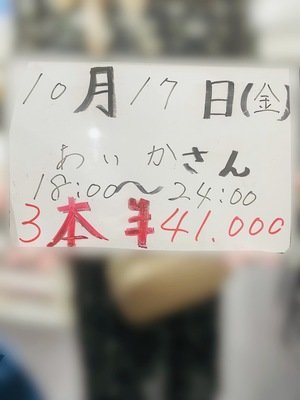 10月17日(金)
あいかさん
18:00〜24:00
3本¥41.000